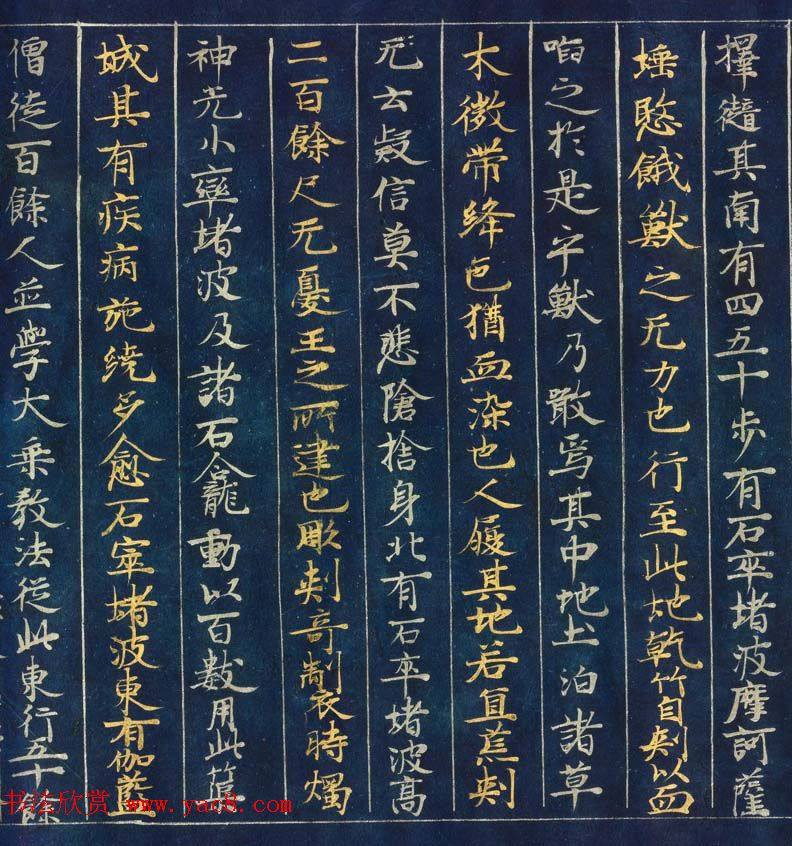 擇猪其南有四五十步有石卒堵波摩訶薩
埵愍餓獸之无力也行至此地乾竹自刺以血
啗之於是乎獸乃噉焉其中地土洎諸草
木微帶絳色猶血染也人履其地若負芒刺
无云疑信莫不悲愴捨身北有石卒堵波高
二百餘尺无憂王之所建也彫刻奇製時燭
神光小窣堵波及諸石龕動以百數周此塋
域其有疾病旋繞多愈石窣堵波東有伽藍
僧徒百餘人並學大乘教法從此東行五十餘
书法欣赏 www.yac8.com